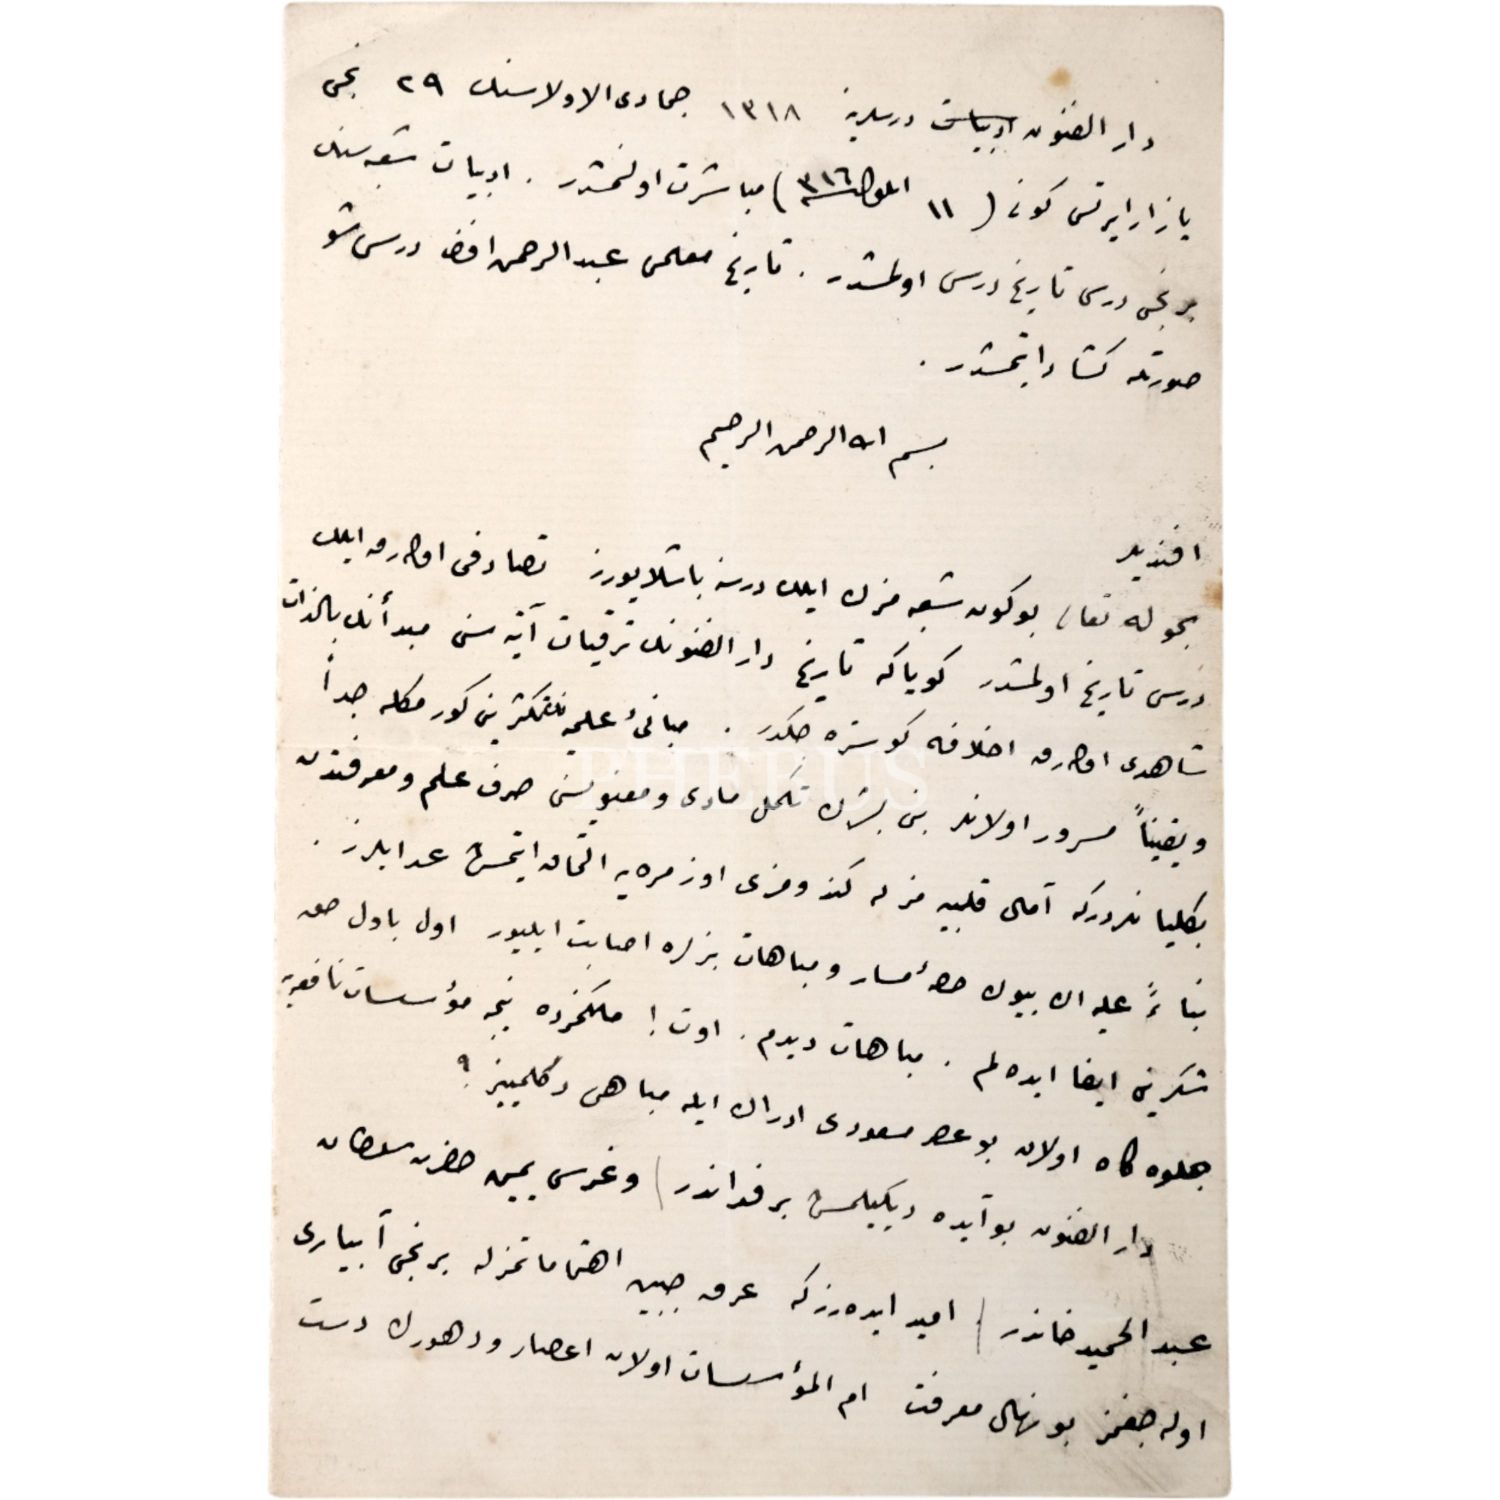 دار الفنون ادبیات درسلرینه ١٣١٨ جمادی الاولاسنك ٢٩ نجی
بازار ایرتسی كونی ( ١١ ایلول ٣١٦ ) مباشرت اولنمشدر . ادبیات شعبه سنك
برنجی درسی تاریخ درسی اولمشدر . تاریخ معلمی عبدالرحمن افندی درسی شو
صورتله كشاد ایتمشدر .
بسم الله الرحمن الرحیم
افندیلر
بحوله تعالی بوكون شعبه مزك ایلك درسنه باشلایورز تصادفی اوله رق ایلك
درس تاریخ اولمشدر كویاكه تاریخ دار الفنونك ترقیات آتیه سنی مبدأنك بالذات
شاهدی اوله رق اخلافه كوستره جكدر . مبانئ علمیه نك تكثرینی كورمكله جداً
و یقیناً مسرور اولانلر بنی بشرك تكمل مادی و معنویسنی صرف علم و معرفتدن
بكلیانلردركه آمال قلبیه مزله كندومزی او زمره یه التحاق ایتمش عد ایلرز .
بناءً علیه اك بیوك حصۀ مسار و مباهات بزلره اصابت ایلیور اول باول حق
شكرینی ایفا ایده لم . مباهات دیدم . اوت ! ملكمزده نیجه مؤسسات نافعه یه
جلوه كاه اولان بو عصر مسعودی ادراك ایله مباهی دكلمییز ؟
دار الفنون بو آنده دیكیلمش بر فداندر / و غرس یمین حضرت سلطان
عبد الحمید خاندر / امید ایده رزكه عرق جبین اهتماماتمزله برنجی آبیاری
اوله جغمز بو نهال معرفت ام المؤسسات اولان اعصار و دهورك دست
PHEBUS